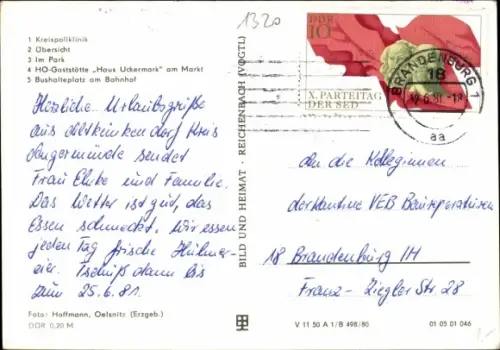 1320
1 Kreispoliklinik
2 Übersicht
3 Im Park
4 HO-Gaststätte „Haus Uckermark" am Markt
5 Bushalteplatz am Bahnhof
DDR
10
X. PARTEITAG
DER SED
BRANDENBURG 1
18
aa
Herzliche Urlaubsgrüße
aus Altkünkendorf Kreis
Angermünde sendet
Frau Elske und Familie.
Das Wetter ist gut, das
Essen schmeckt. Wir essen
jeden Tag frische Hühner-
eier. Tschüß dann bis
zum 25.6.81.
BILD UND HEIMAT · REICHENBACH (VOGTL)
An die Kolleginnen
der Kantine VEB Baureparaturen
18 Brandenburg /H
Franz-Ziegler Str. 28
Foto: Hoffmann, Oelsnitz (Erzgeb.)
DDR 0,20 M
V 11 50 A 1/B 498/80
01 05 01 046